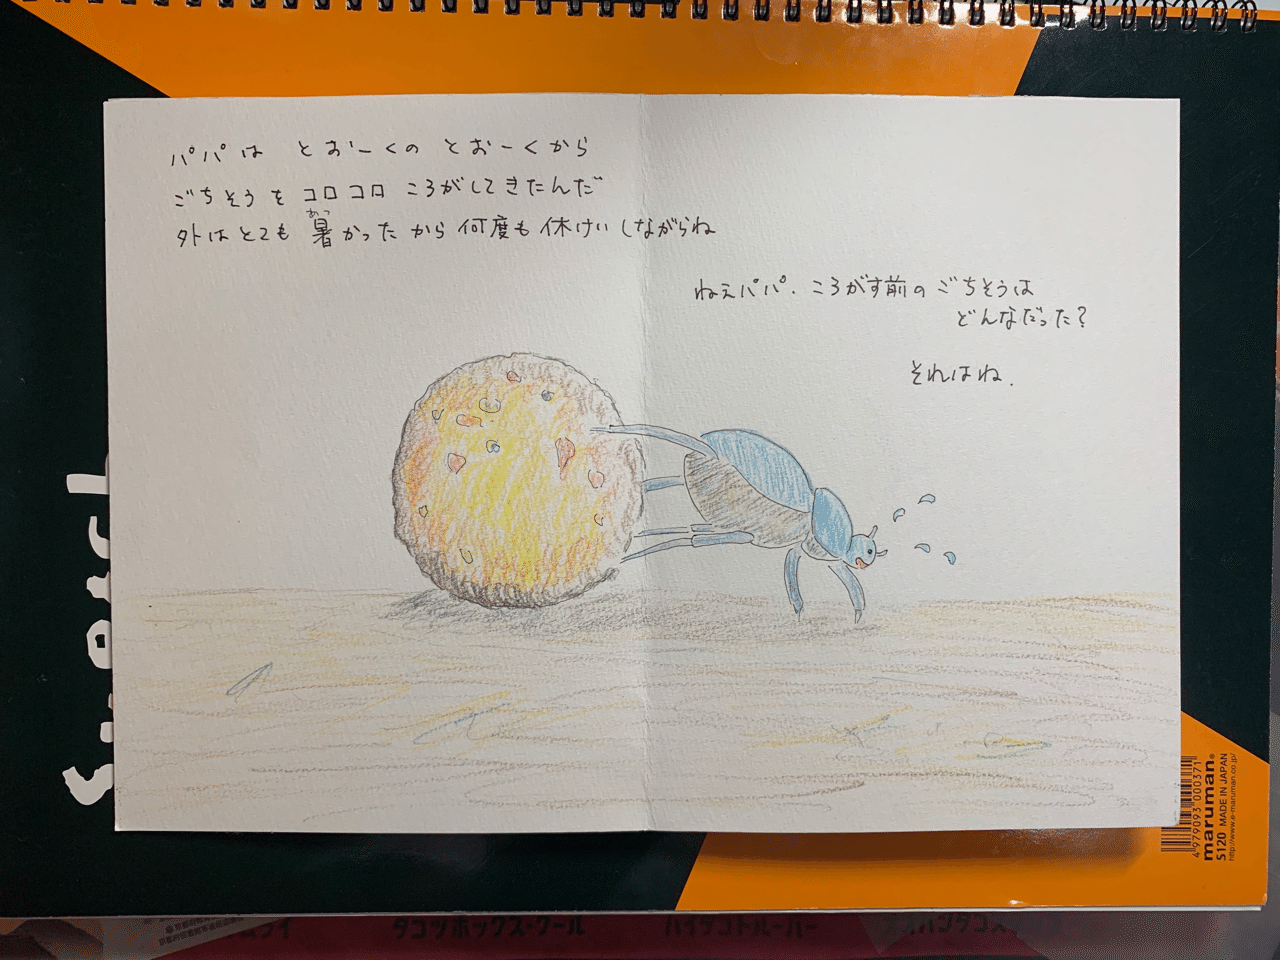 パパは とおーくの とおーくから
ごちそうを コロコロ ころがしてきたんだ
あつ
外はとても 暑かったから 何度も 休けいしながらね
ねえパパ、ころがす前の ごちそうは
どんなだった?
それはね、
4 979093 000371
maruman®
S120 MADE IN JAPAN
http://www.e-maruman.co.jp/
タコツボックス・クール